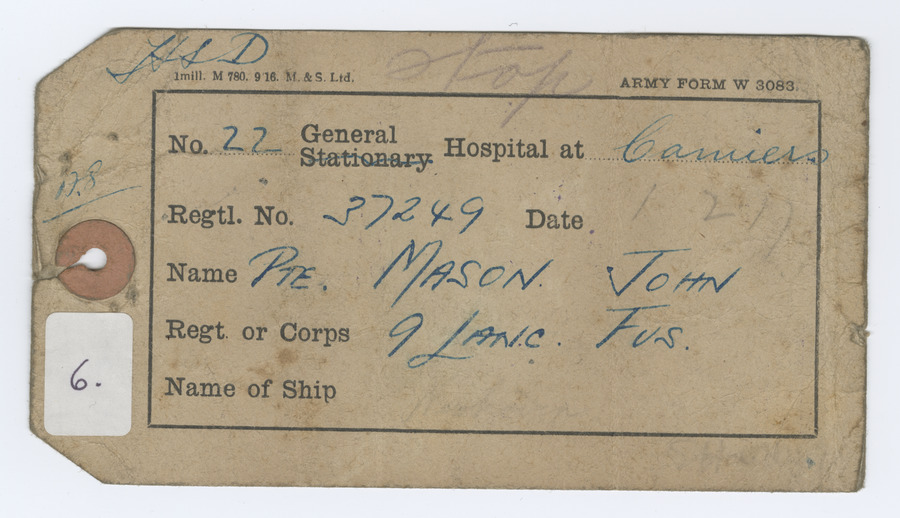 HSD
1mill. M 780. 9 16. M. & S. Ltd. Stop ARMY FORM W 3083.
No. 22 General Stationary Hospital at Camiers
Regtl. No. 37249 Date 1 2 17
Name Pte. MASON. JOHN
Regt. or Corps 9 LANC. FUS.
Name of Ship
6.